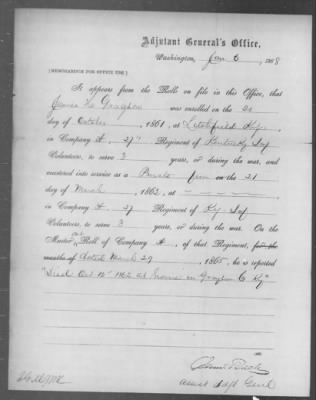 Adjutant General's Office,
Washington, Jan 6, 1868
[MEMORANDUM FOR OFFICE USE.]
It appears from the Rolls on file in this Office, that
James was enrolled on the 20
day of October, 1861, at Litchfield Ky,
in Company A. 27" Regiment of Kentucky Inf
Volunteers, to serve 3 years, or during the war, and
mustered into service as a Private from on the 21
day of March, 1862, at — — — —
in Company A. 27 Regiment of Ky. Inf
Volunteers, to serve 3 years, or during the war. On the
Muster out Roll of Company A., of that Regiment, for the
months of dated March 29, 1865, he is reported
"Died Oct 12" 1862 at home in Grayson C Ky"
Assist Adjt Genl